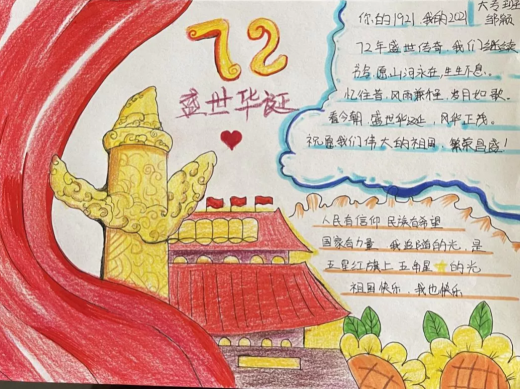 72
盛世华诞
你的1921,我的2021
邹颖
72年盛世传奇,我们继续
愿山河永在,生生不息。
忆往昔,风雨兼程,岁月如歌。
看今朝,盛世华诞,风华正茂。
祝愿我们伟大的祖国,繁荣昌盛!
人民有信仰 民族有希望
国家有力量,我追随的光,是
五星红旗上五角星的光
祖国快乐,我也快乐